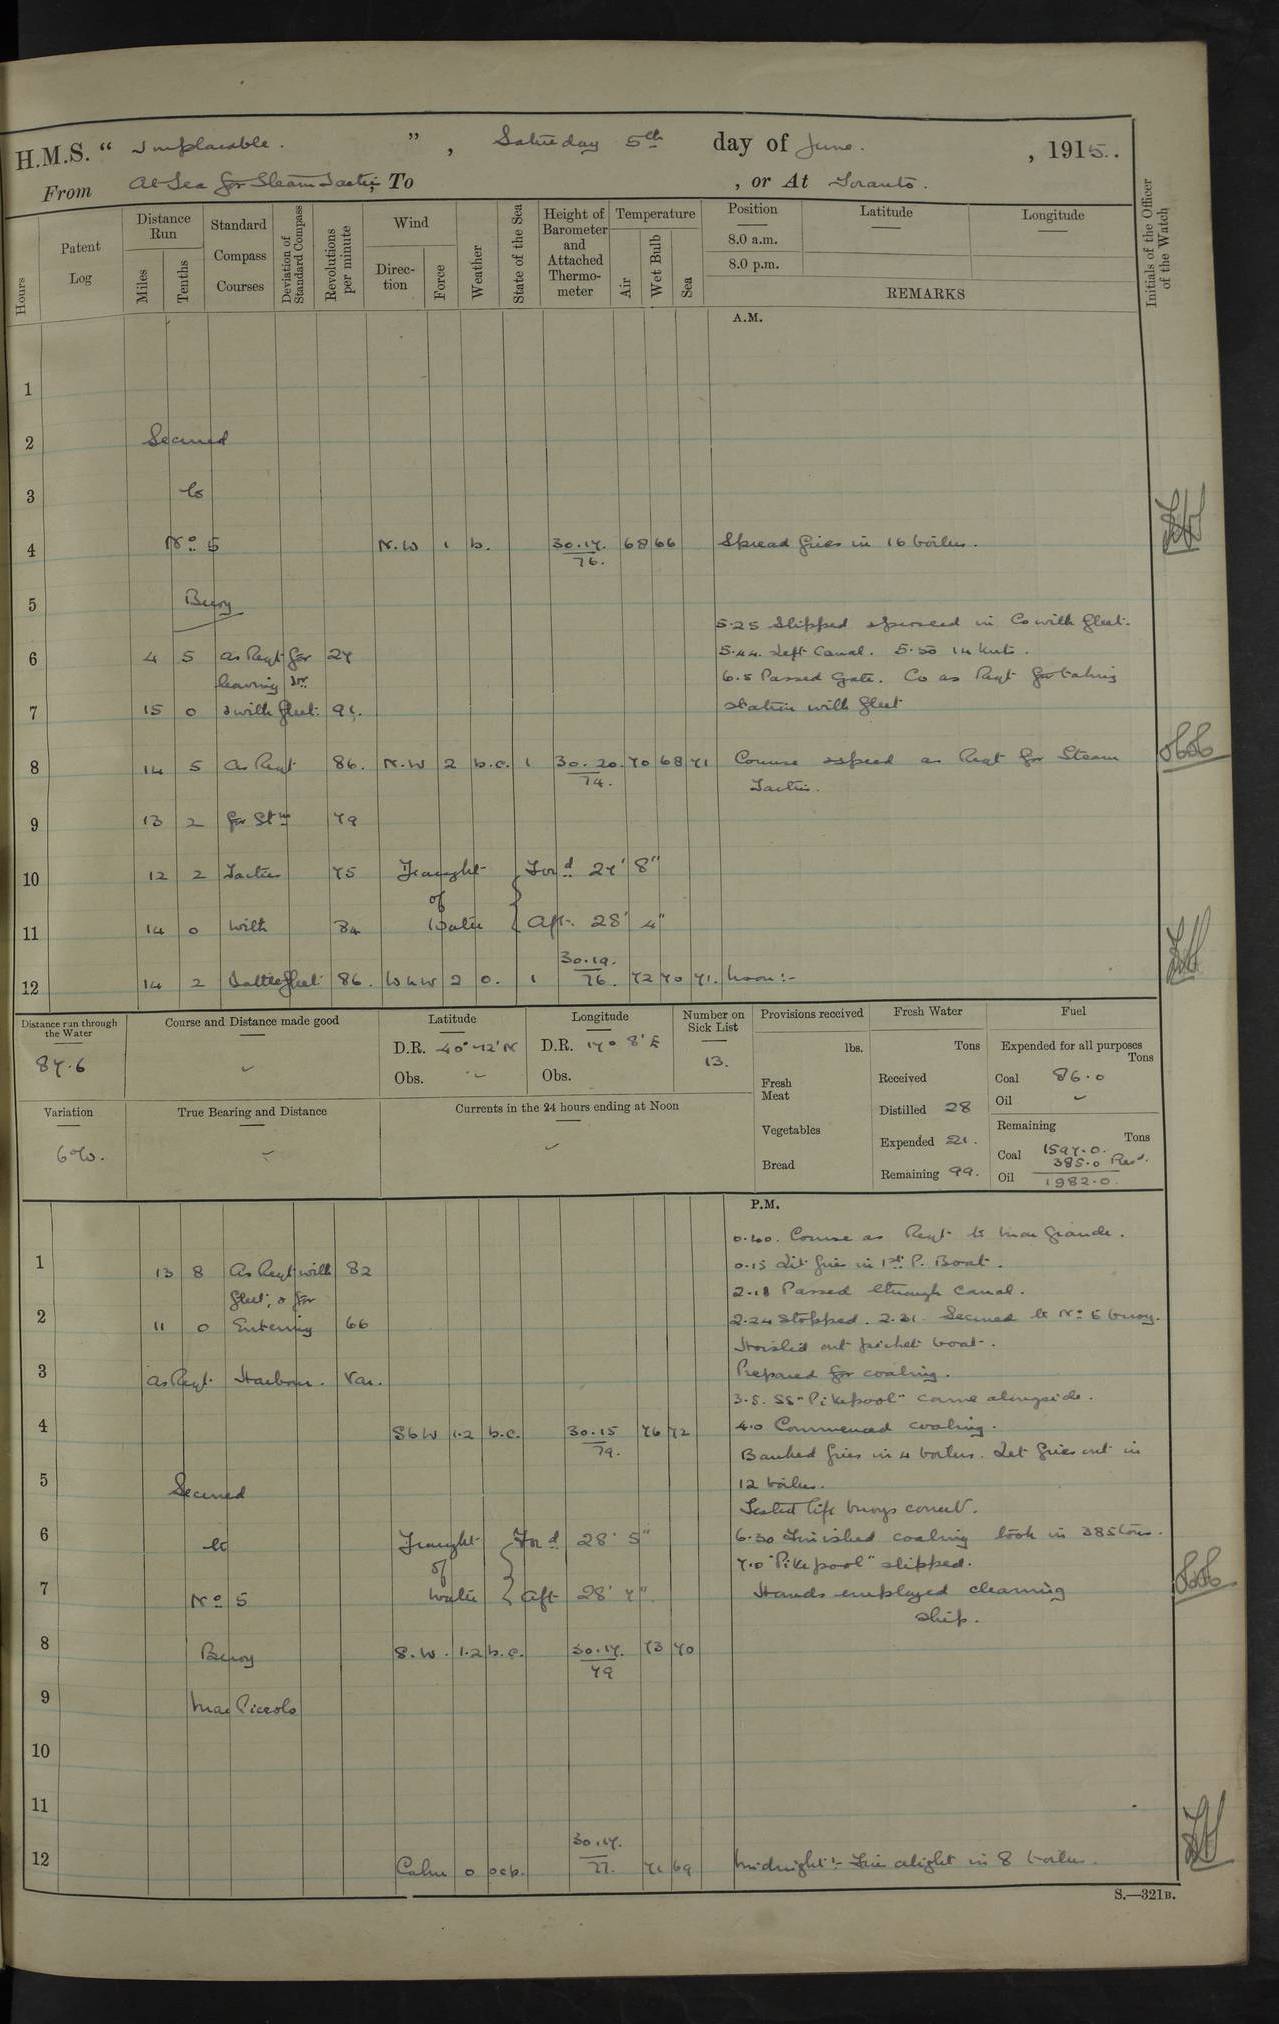 H.M.S. “ Implacable. ”, Saturday 5th day of June. , 1915.
From At Sea for Steam Tactics To , or At Taranto.
Hours
Patent Log
Distance Run
Miles
Tenths
Standard Compass Courses
Deviation of Standard Compass
Revolutions per minute
Wind
Direction
Force
Weather
State of the Sea
Height of Barometer and Attached Thermometer
Temperature
Air
Wet Bulb
Sea
Position
Latitude
Longitude
8.0 a.m.
8.0 p.m.
REMARKS
Initials of the Officer of the Watch
A.M.
1
2 Secured
3 to
4 No 5 N.W 1 b. 30.17. 76. 68 66 Spread fires in 16 boilers.
5 Buoy
5.25 Slipped & proceed in Co with fleet.
6 4 5 as Reqt for 27 5.44. Left Canal. 5.50 14 knts.
leaving Hr 6.5 Passed Gate. Co as Reqt for taking
7 15 0 & with fleet. 91. station with fleet
8 14 5 As Reqt 86. N.W 2 b.c. 1 30.20. 74. 70 68 71 Course & speed as Reqt for Steam
Tactics.
9 13 2 for Stm 79
10 12 2 Tactics 75 Draught Ford 27' 8"
of
11 14 0 with 84 Water Aft. 28' 4"
12 14 2 Battlefleet 86. W N W 2 o. 1 30.19. 76. 72 70 71. Noon:-
Distance run through the Water
87.6
Course and Distance made good
Latitude
D.R. 40° 12' N
Obs.
Longitude
D.R. 17° 8' E
Obs.
Number on Sick List
13.
Provisions received
lbs.
Fresh Meat
Vegetables
Bread
Fresh Water
Tons
Received
Distilled 28
Expended 21.
Remaining 99.
Fuel
Expended for all purposes
Tons
Coal 86.0
Oil
Remaining
Tons
Coal 1597.0.
385.0 Recd.
Oil 1982.0.
Variation
6°W.
True Bearing and Distance
Currents in the 24 hours ending at Noon
P.M.
Course as Reqt to Mar Grande.
1 13 8 As Reqt with 82 0.15 Lit fires in 1st P. Boat.
fleet, & for 2.18 Passed through canal.
2 11 0 Entering 66 2.24 Stopped. 2.31 Secured to No 5 buoy.
Hoisted out picket boat.
3 as Reqt Harbour. Var. Prepared for coaling.
3.5. SS "Pikepool" came alongside.
4 S b W 1.2 b.c. 30.15 79. 76 72 4.0 Commenced coaling.
Banked fires in 4 boilers. Let fires out in
5 Secured 12 boilers.
Tested life buoys correct.
6 to Draught Ford 28' 5" 6.30 Finished coaling took in 385 tons.
of 7.0 "Pikepool" slipped.
7 No 5 Water Aft 28' 7". Hands employed cleaning
ship.
8 Buoy S.W. 1.2 b.c. 30.17. 79 73 70
9 Mar Piccolo
10
11
12 Calm 0 30.17. 77. 71 69 Midnight:- Fires alight in 8 boilers.
S.—321B.